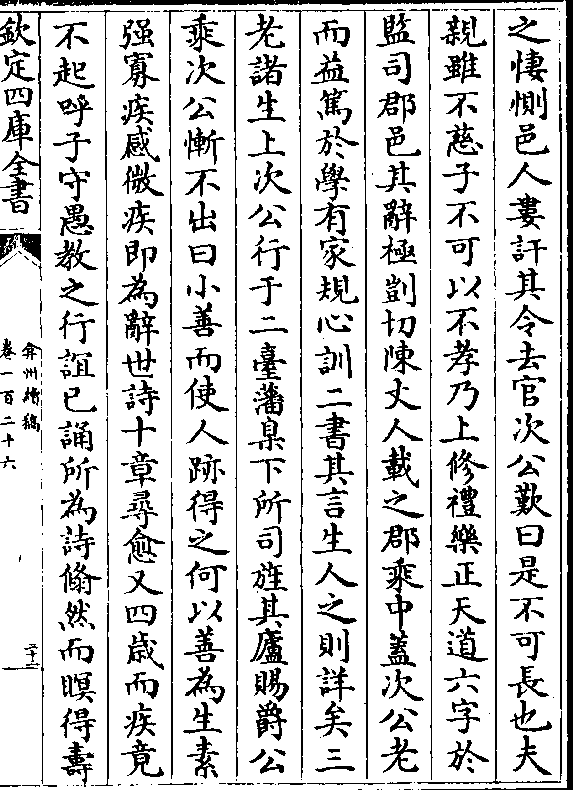 之悽惻邑人婁訐其令去官次公歎曰是不可長也夫
親雖不慈子不可以不孝乃上修禮樂正天道六字於
監司郡邑其辭極剴切陳丈人載之郡乘中蓋次公老
而益篤於學有家規心訓二書其言生人之則詳矣三
老諸生上次公行于二臺藩臬下所司旌其廬賜爵公
乘次公慚不出曰小善而使人跡得之何以善為生素
强寡疾感微疾即為辭世詩十章尋愈又四歲而疾竟
不起呼子守愚教之行誼已誦所為詩翛然而瞑得壽
欽定四庫全書
弇州續稿
卷一百二十六